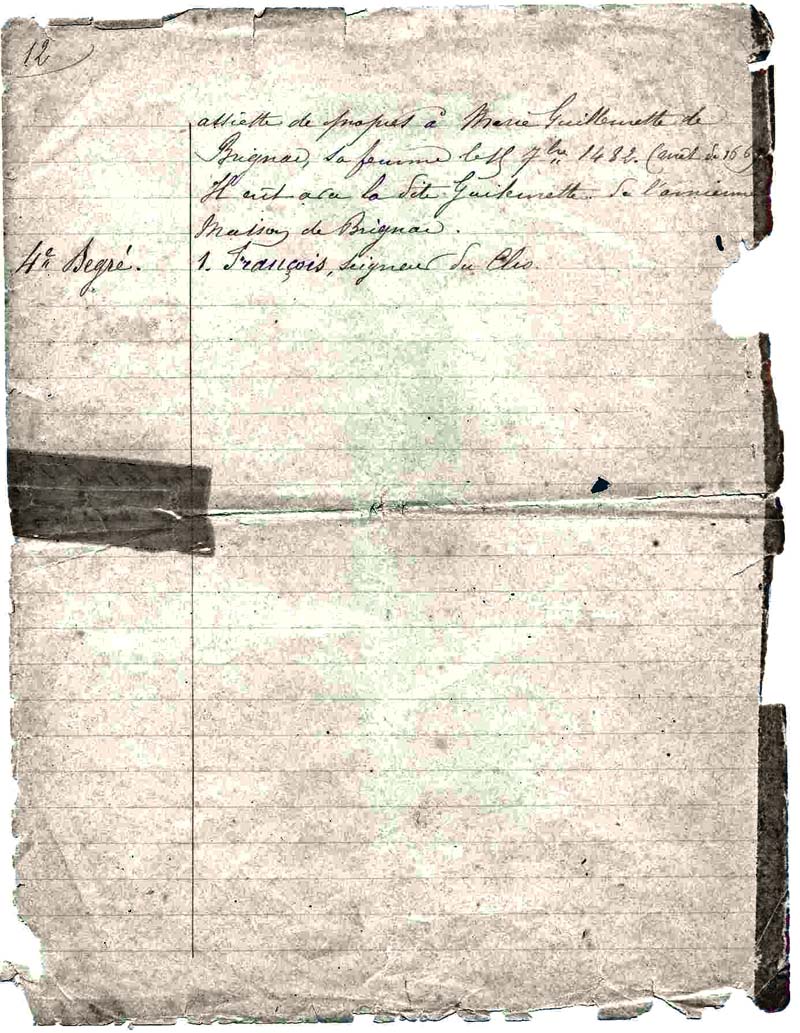 12
assiette de propres à Marie Guillemette de
Brignac, sa femme le 7bre 1482. (arrêt de 166
Il eut de la dite Guillemette de l'ancienne
Maison de Brignac.
4e Degré. 1. François, seigneur du Clio.